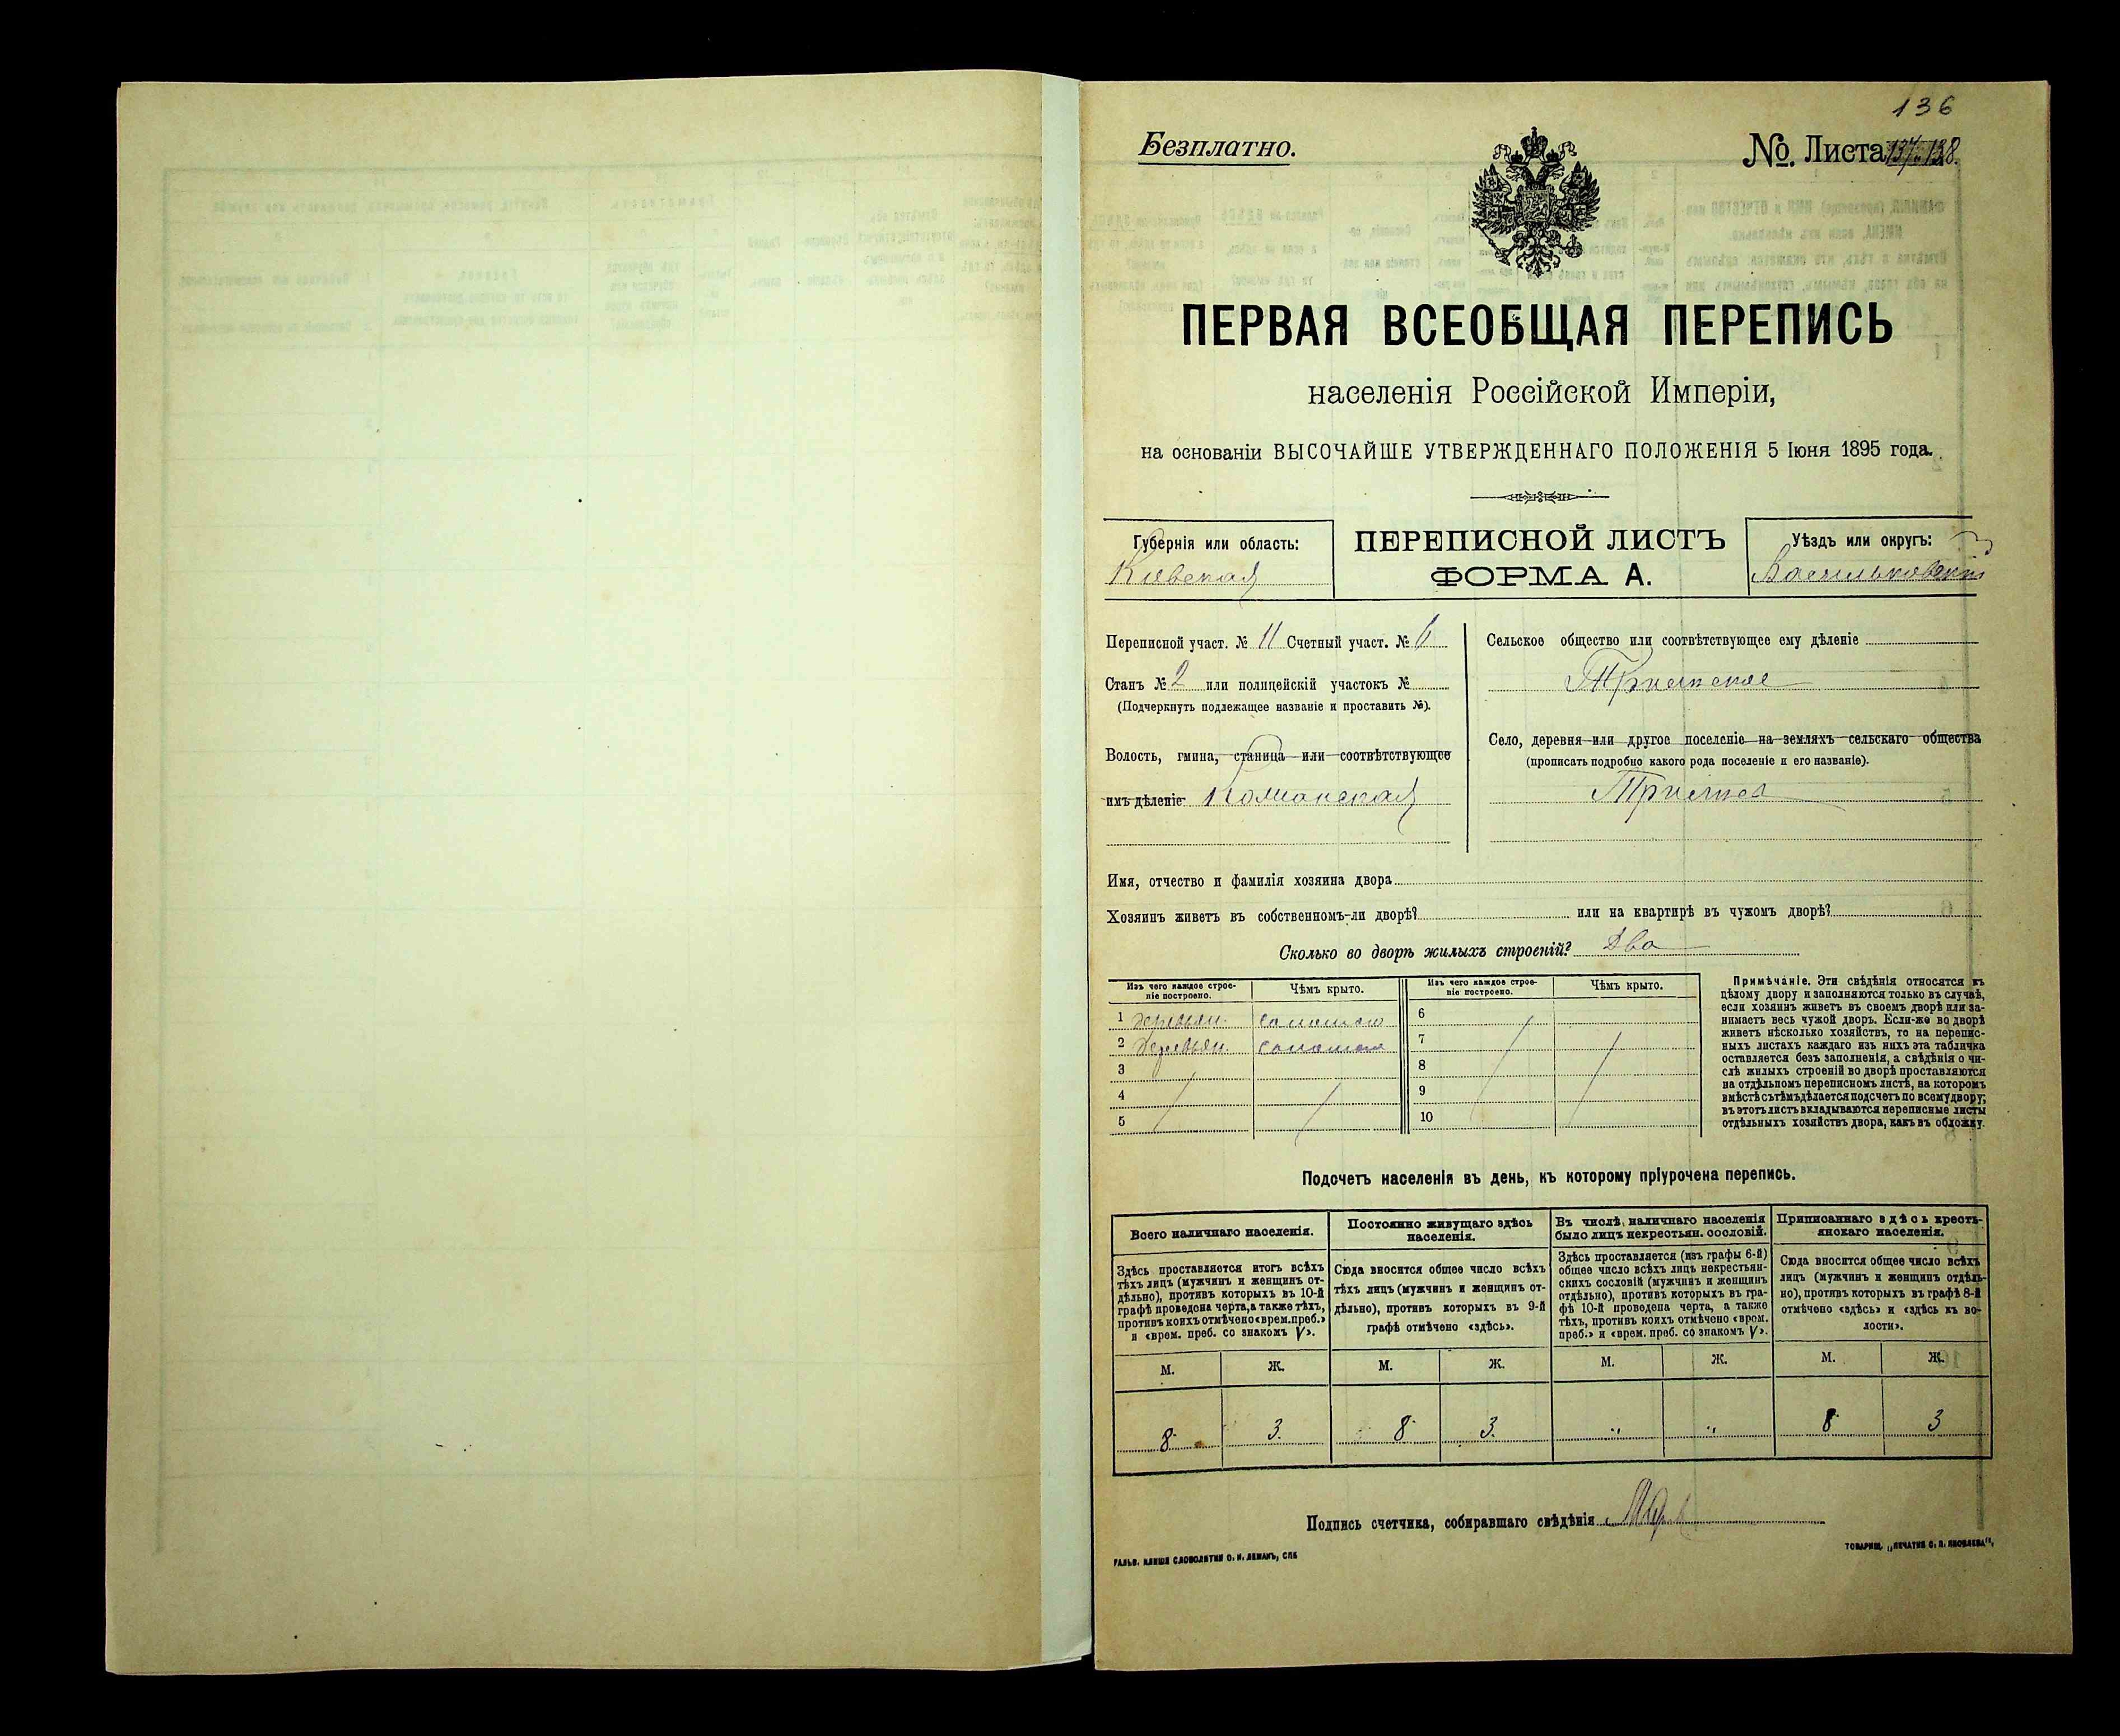 136
Безплатно.
№. Листа 137-138.
ПЕРВАЯ ВСЕОБЩАЯ ПЕРЕПИСЬ
населенія Россійской Имперіи,
на основаніи ВЫСОЧАЙШЕ УТВЕРЖДЕННАГО ПОЛОЖЕНІЯ 5 Іюня 1895 года.
Губернія или область:
Кіевская
ПЕРЕПИСНОЙ ЛИСТЪ
ФОРМА А.
Уѣздъ или округъ:
Васильковскій
Переписной участ. № 11 Счетный участ. № 6
Станъ № 2 или полицейскій участокъ №
(Подчеркнуть подлежащее названіе и проставить №).
Волость, гмина, станица или соотвѣтствующее
имъ дѣленіе
Сельское общество или соотвѣтствующее ему дѣленіе
Село, деревня или другое поселеніе на земляхъ сельскаго общества
(прописать подробно какого рода поселеніе и его названіе).
Имя, отчество и фамилія хозяина двора
Хозяинъ живетъ въ собственномъ-ли дворѣ? или на квартирѣ въ чужомъ дворѣ?
Сколько во дворѣ жилыхъ строеній? Два
Изъ чего каждое строе-
ніе построено.
Чѣмъ крыто.
Изъ чего каждое строе-
ніе построено.
Чѣмъ крыто.
1 деревян. соломою
2 деревян. соломою
3
4
5
6
7
8
9
10
Примѣчаніе. Эти свѣдѣнія относятся къ
цѣлому двору и заполняются только въ случаѣ,
если хозяинъ живетъ въ своемъ дворѣ или за-
нимаетъ весь чужой дворъ. Если-же во дворѣ
живетъ нѣсколько хозяйствъ, то на перепис-
ныхъ листахъ каждаго изъ нихъ эта табличка
оставляется безъ заполненія, а свѣдѣнія о чи-
слѣ жилыхъ строеній во дворѣ проставляются
на отдѣльномъ переписномъ листѣ, на которомъ
вмѣстѣ съ тѣмъ дѣлается подсчетъ по всему двору;
въ этотъ листъ вкладываются переписные листы
отдѣльныхъ хозяйствъ двора, какъ въ обложку.
Подсчетъ населенія въ день, къ которому пріурочена перепись.
Всего наличнаго населенія.
Здѣсь проставляется итогъ всѣхъ
тѣхъ лицъ (мужчинъ и женщинъ от-
дѣльно), противъ которыхъ въ 10-й
графѣ проведена черта, а также тѣхъ,
противъ коихъ отмѣчено «врем. преб.»
и «врем. преб. со знакомъ V».
Постоянно живущаго здѣсь
населенія.
Сюда вносится общее число всѣхъ
тѣхъ лицъ (мужчинъ и женщинъ от-
дѣльно), противъ которыхъ въ 9-й
графѣ отмѣчено «здѣсь».
Въ числѣ наличнаго населенія
было лицъ некрестьян. сословій.
Здѣсь проставляется (изъ графы 6-й)
общее число всѣхъ лицъ некрестьян-
скихъ сословій (мужчинъ и женщинъ
отдѣльно), противъ которыхъ въ гра-
фѣ 10-й проведена черта, а также
тѣхъ, противъ коихъ отмѣчено «врем.
преб.» и «врем. преб. со знакомъ V».
Приписаннаго здѣсь кресть-
янскаго населенія.
Сюда вносится общее число всѣхъ
лицъ (мужчинъ и женщинъ отдѣль-
но), противъ которыхъ въ графѣ 8-й
отмѣчено «здѣсь» и «здѣсь къ во-
лости».
М. Ж. М. Ж. М. Ж. М. Ж.
8 3. 8 3. " " 8 3
Подпись счетчика, собиравшаго свѣдѣнія
ГАЛЬВ. КЛИШЕ СЛОВОЛИТНИ О. И. ЛЕМАНЪ, СПБ
ТОВАРИЩ. „ПЕЧАТНЯ С. П. ЯКОВЛЕВА",